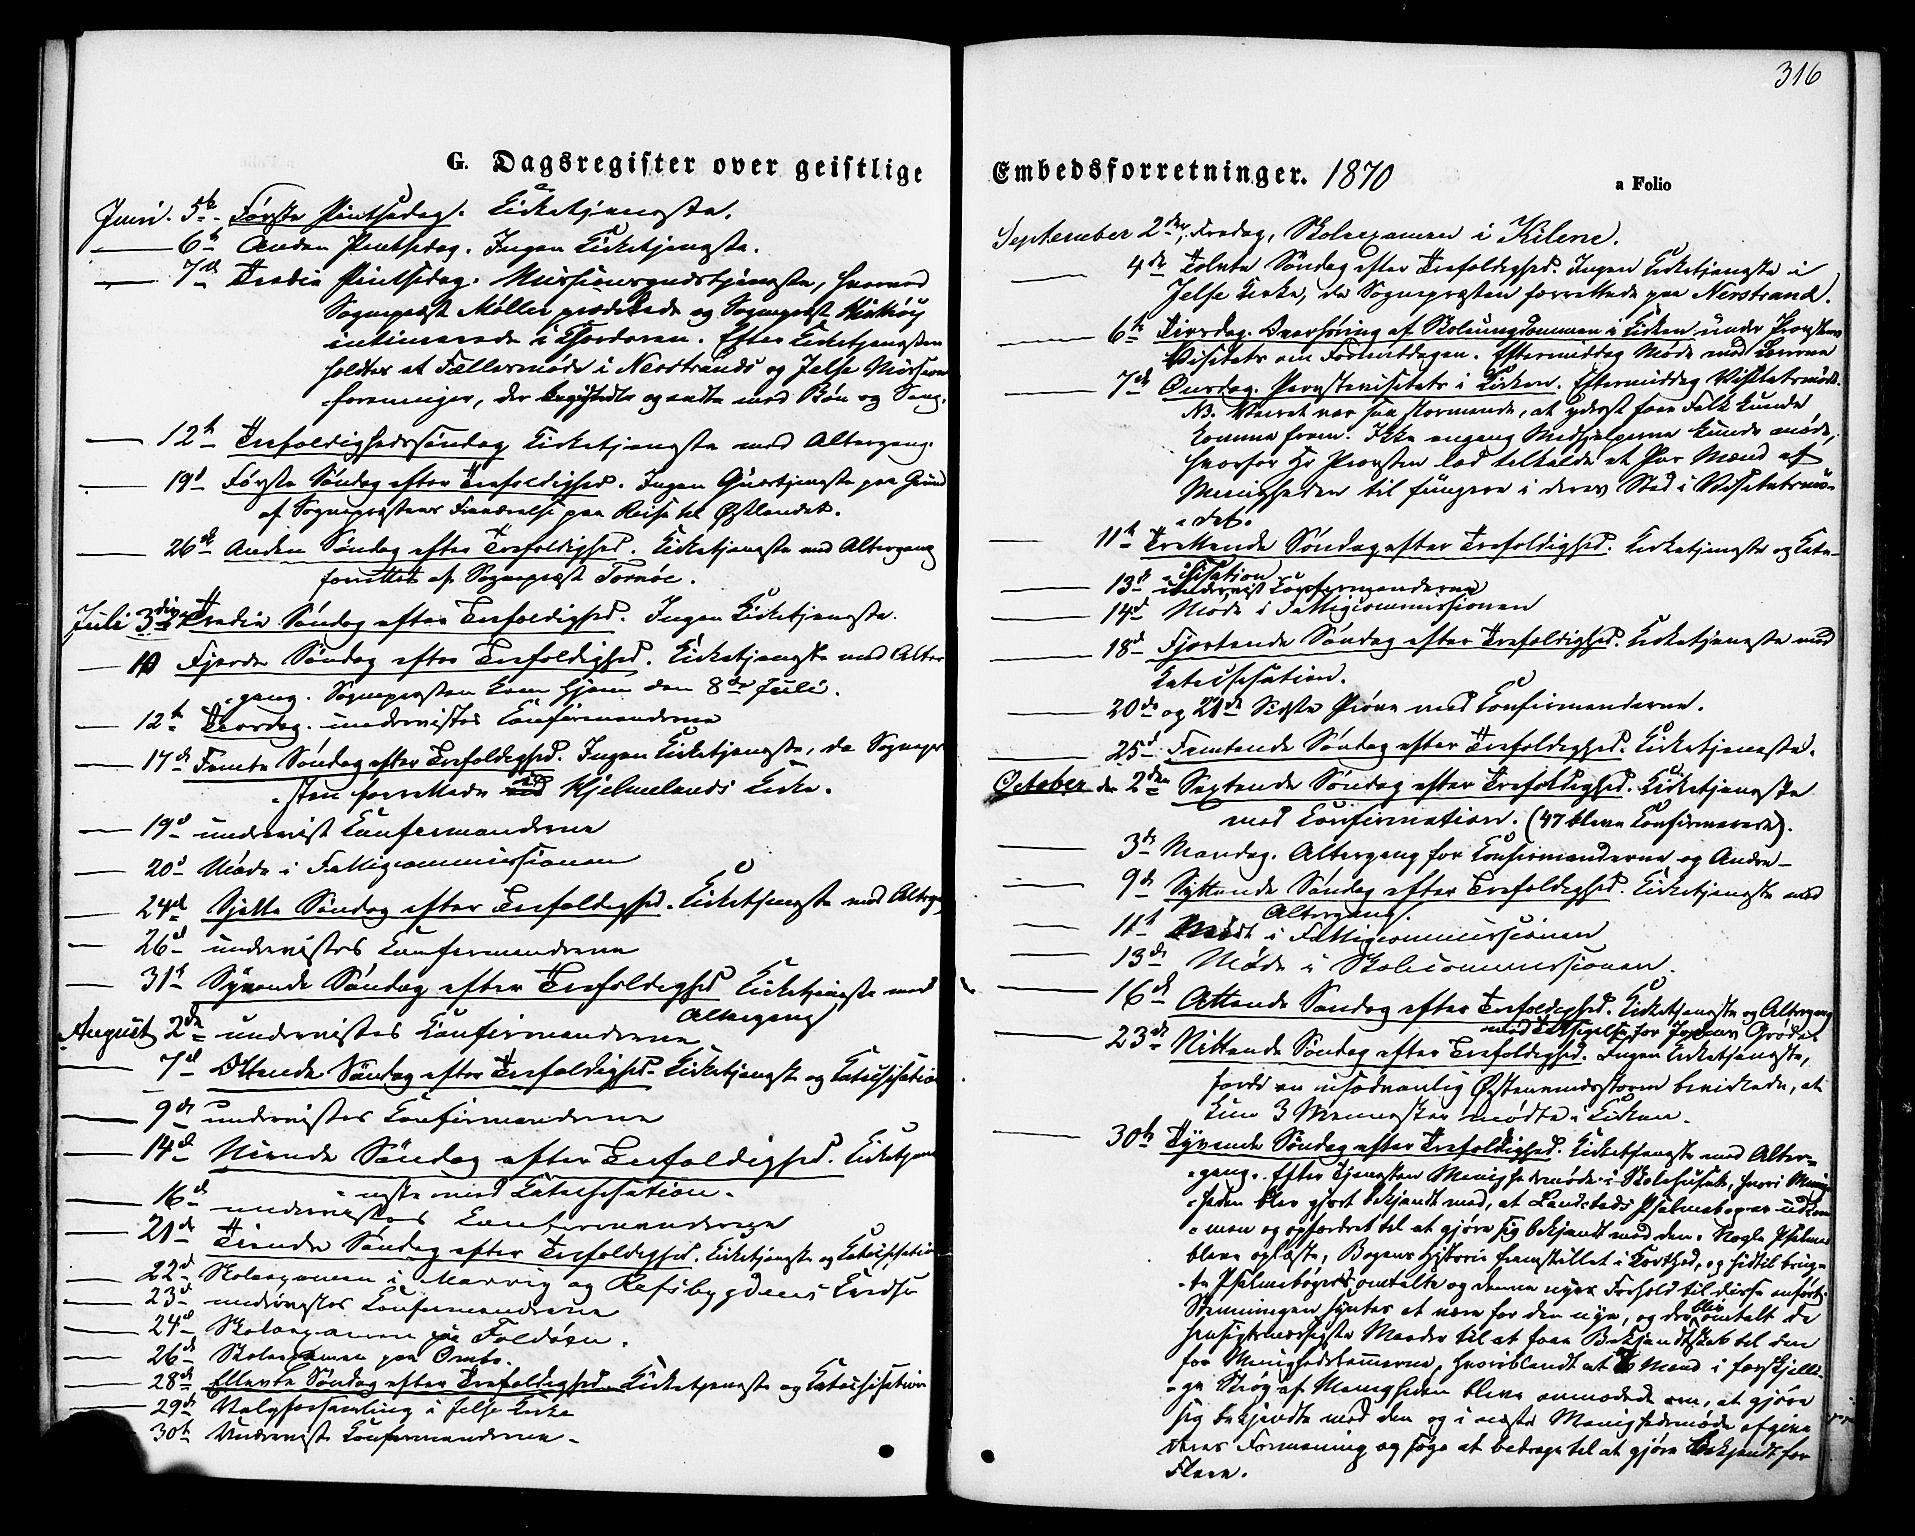 316
G. Dagsregister over geistlige
Juni. 5te Første Pintsedag. Kirketjeneste.
6te Anden Pintsedag. Ingen Kirketjeneste.
7de Tredie Pintsedag. Missionsgudstjeneste, hvorved
Sogneprest Møller prædikede og Sogneprest
intimerede i Chordøren. Efter Kirketjenesten
holdtes et Fællesmøde i Nerstrands og Jelse Missions
foreninger, der begyndte og endte med Bøn og Sang.
12te Trefoldighedssøndag Kirketjeneste med Altergang.
19de Første Søndag efter Trefoldighed. Ingen Gudstjeneste paa Grund
af Sogneprestens Fraværelse paa Reise til Østlandet.
26de Anden Søndag efter Trefoldighed. Kirketjeneste med Altergang
forrettet af Sogneprest Tornøe.
Juli 3die Tredie Søndag efter Trefoldighed. Ingen Kirketjeneste.
10 Fjerde Søndag efter Trefoldighed. Kirketjeneste med Alter
gang. Sognepresten kom hjem den 8de Juli.
12te Tirsdag. undervistes Confirmanderne
17de Femte Søndag efter Trefoldighed. Ingen Kirketjeneste, da Sognepre
sten forrettede ved Hjelmelands Kirke.
19de undervist Confirmanderne
20de Møde i Fattigcommissionen
24de Sjette Søndag efter Trefoldighed. Kirketjeneste med Alterga
26de undervistes Confirmanderne
31te Syvende Søndag efter Trefoldighed Kirketjeneste med
Altergang
August 2den undervistes Confirmanderne
7de Ottende Søndag efter Trefoldighed. Kirketjeneste og Catechisation
9de undervistes Confirmanderne
14de Niende Søndag efter Trefoldighed. Kirketjene
este med Catechisation.
16de undervistes Confirmanderne
21de Tiende Søndag efter Trefoldighed. Kirketjeneste og Catechisation
22de Skoleexamen i Marvig og Refsbygdens Kredse
23de undervistes Confirmanderne
24de Skoleexamen paa Foldøen.
26de Skoleexamen paa Ombo.
28de Ellevte Søndag efter Trefoldighed. Kirketjeneste og Catechisation
29de Valgforsamling i Jelse Kirke
30te Undervist Confirmanderne.
Embedsforretninger. 1870
a Folio
September 2den, Fredag, Skoleexamen i Kilene.
4de Tolvte Søndag efter Trefoldighed. Ingen Kirketjeneste i
Jelse Kirke, da Sognepresten forrettede paa Nerstrand.
6te Tirsdag. Overhøring af Skoleungdommen i Kirken under Provstens
Visitats om Formiddagen. Eftermiddag Møde med Lærerne
7de Onsdag. Provstevisitats i Kirken. Eftermiddag Visitatsmøde.
NB. Veiret var saa stormende, at yderst faae Folk kunde
komme frem. Ikke engang Medhjelperne kunde møde,
hvorfor Hr Provsten lod tilkalde et Par Mænd af
Menigheden til fungere i deres Sted i Visitatsmø-
det.
11te Trettende Søndag efter Trefoldighed. Kirketjeneste og Cate-
chisation
13de undervist Confirmanderne
14de Møde i Fattigcommissionen
18de Fjortende Søndag efter Trefoldighed. Kirketjeneste med
Catechisation.
20de og 21de Sidste Prøve med Confirmanderne.
25de Femtende Søndag efter Trefoldighed. Kirketjeneste.
October den 2den Sextende Søndag efter Trefoldighed. Kirketjeneste
med Confirmation. (47 bleve Confirmerede).
3die Mandag. Altergang for Confirmanderne og Andre
9de Syttende Søndag efter Trefoldighed. Kirketjeneste med
Altergang.
11te Mødt i Fattigcommissionen
13de Møde i Skolecommissionen.
16de Attende Søndag efter Trefoldighed. Kirketjeneste og Altergang
med Taksigelse for Jordens Grøde
23de Nittende Søndag efter Trefoldighed. Ingen Kirketjeneste,
fordi en usædvanlig Østenvindsstorm bevirkede, at
kun 3 Mennesker mødte i Kirken.
30te Tyvende Søndag efter Trefoldighed. Kirketjeneste med Alter-
gang. Efter Tjenesten Menighedsmøde i Skolehuset, hvori Menig
heden blev gjort bekjendt med, at Landstads Psalmebog var udkom
men og opfordret til at gjøre sig bekjendt med den. Nogle Psalmer
bleve oplæste, Bogens Historie fremstillet i Korthed, og hidtil brug-
te Psalmebøgers omtalte og denne nyes Forhold til disse anført.
Stemningen syntes at være for den nye, og der blev omtalt de
hensigtsmæssigste Maader til at faae Bekjendtskab til den
for Menighedslemmerne, hvoriblandt at 6 Mænd i forskjelli-
ge Strøg af Menigheden bleve anmodede om, at gjøre
sig bekjendte med den og i næste Menighedsmøde afgive
deres Formening og søge at bidrage til at gjøre bekjendt for
Flere.